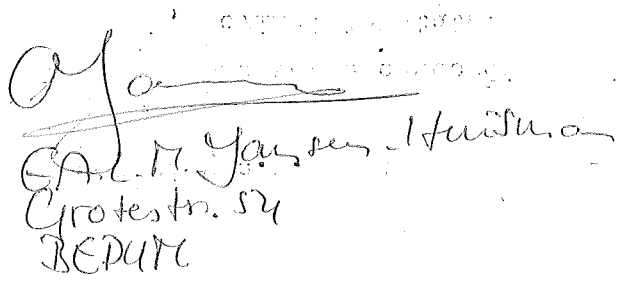 E.A.L.M. Jansen-Huisman
Grotestr. 54
BEDUM